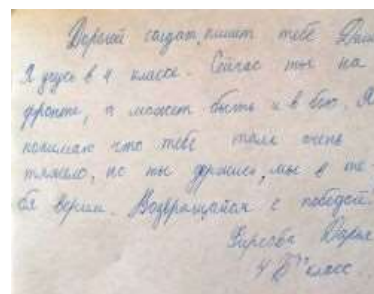 Дорогой солдат, пишет тебе Даш
Я учусь в 4 классе. Сейчас ты на
фронте, а может быть и в бою. Я
понимаю что тебе там очень
тяжело, но ты держись, мы в те-
бя верим. Возвращайся с победой.
Фирсова Дарья
4 "Б" класс.